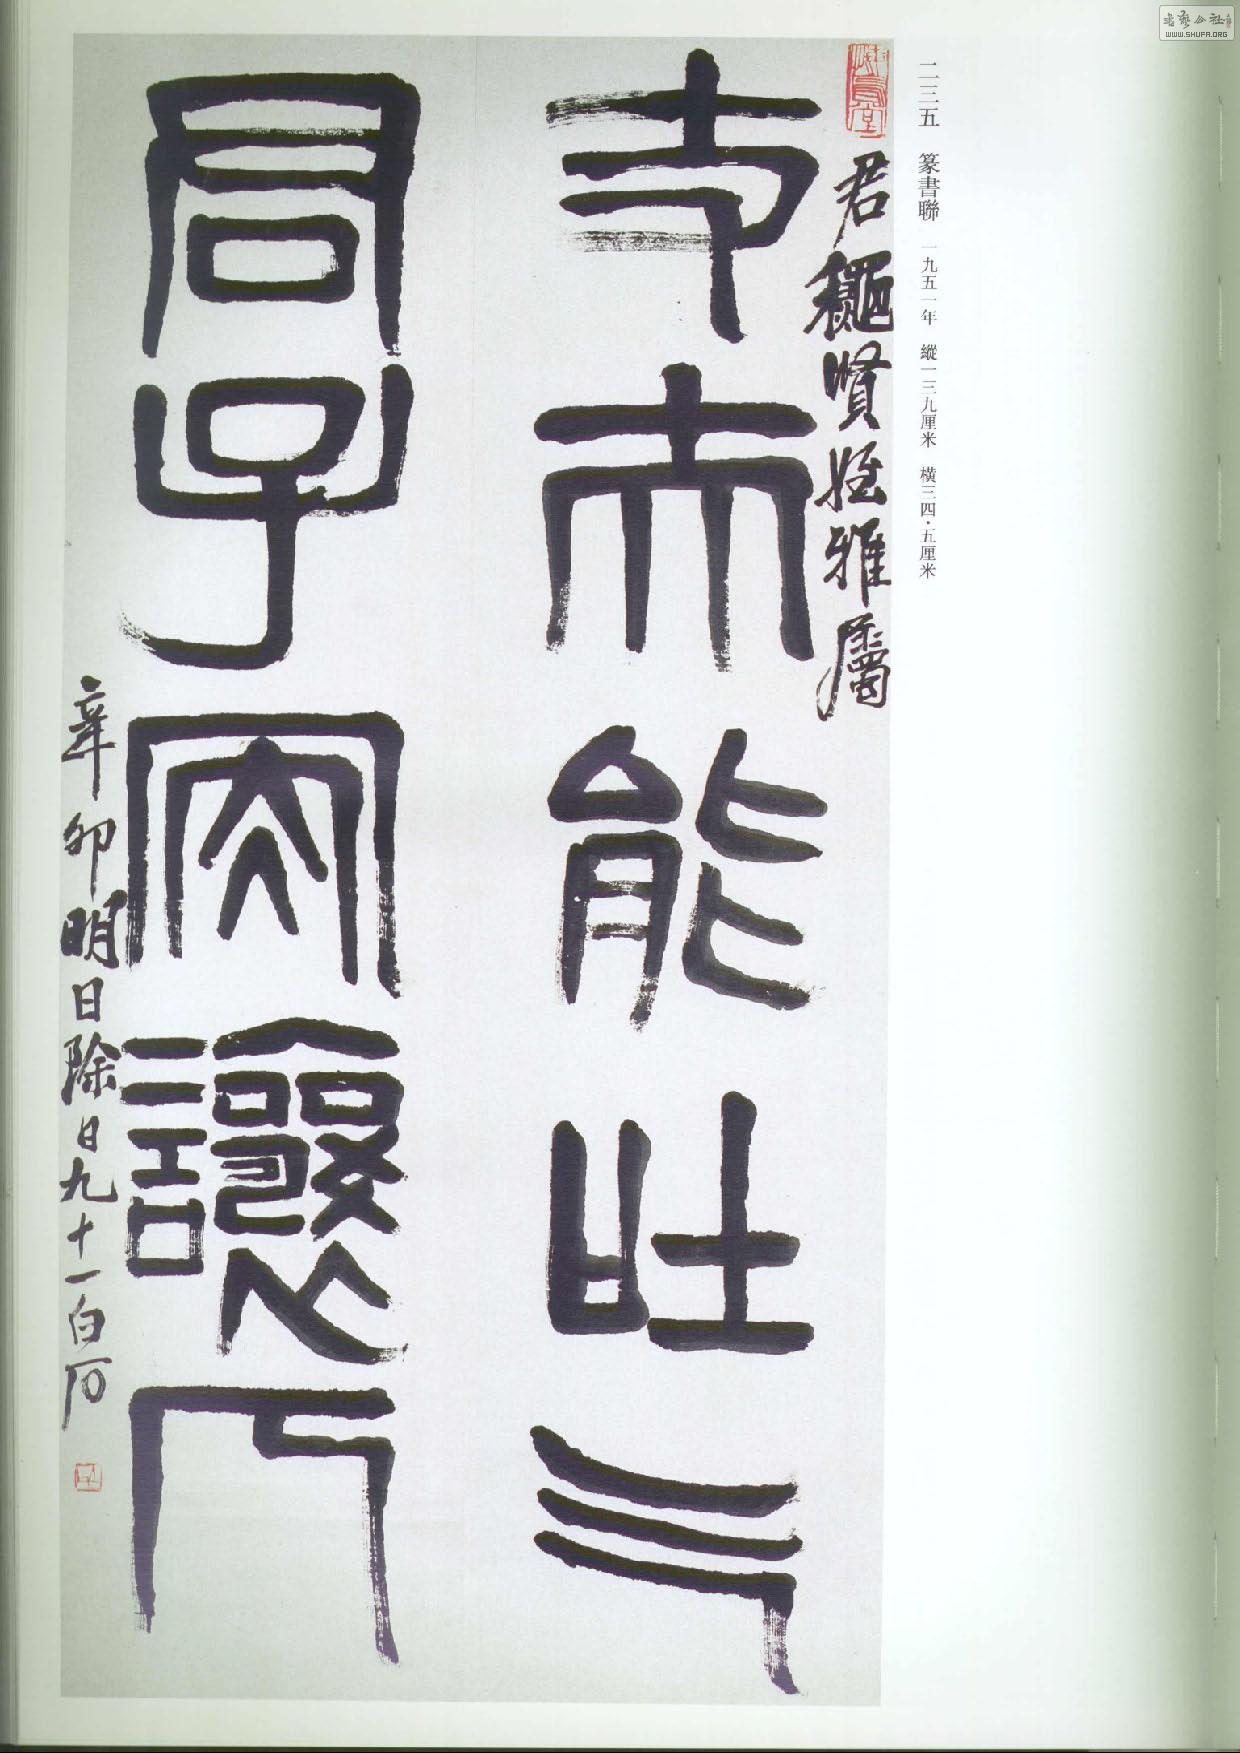 二三五 篆書聯 一九五一年 縱一三九厘米 橫三四·五厘米
君龝賢姪雅屬
丈夫能吐气
君子讓人
辛卯明日除日九十一白石
书艺公社
WWW.SHUFA.ORG